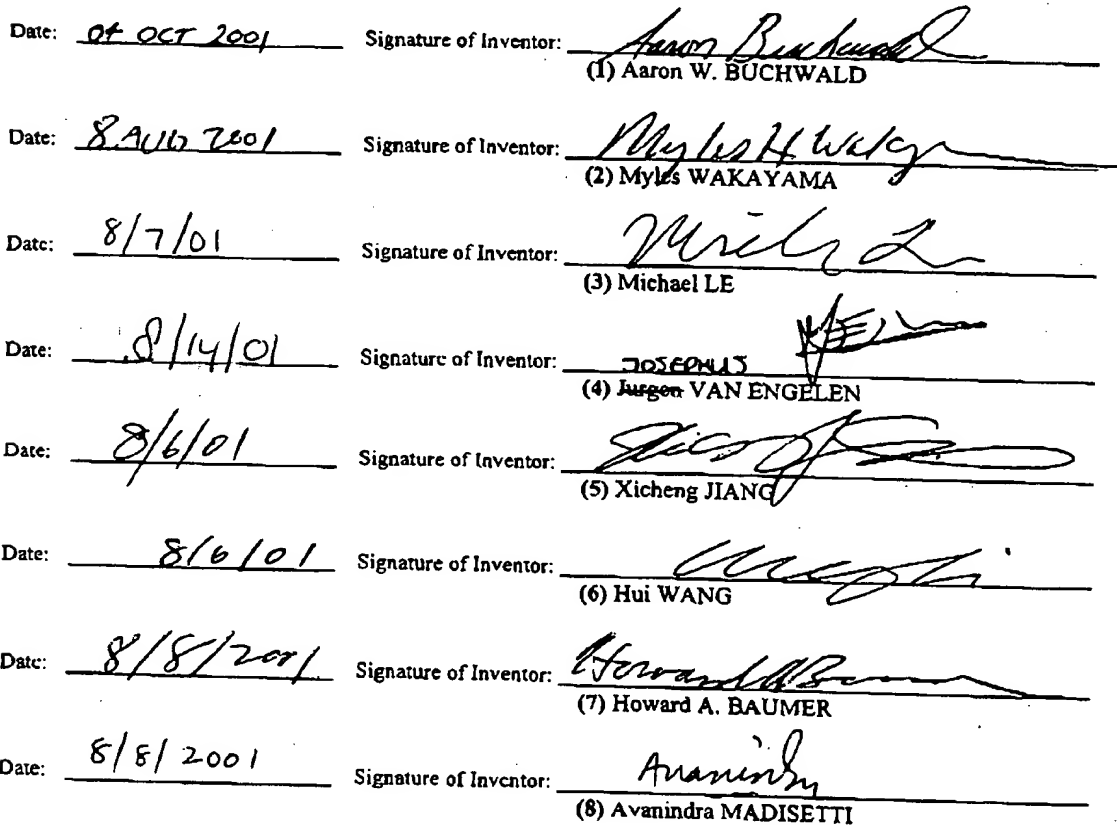 Date: 04 OCT 2001 Signature of Inventor: Aaron Buchwald
(1) Aaron W. BUCHWALD
Date: 8 AUG 2001 Signature of Inventor: Myles H Wakayama
(2) Myles WAKAYAMA
Date: 8/7/01 Signature of Inventor: Michael Le
(3) Michael LE
Date: 8/14/01 Signature of Inventor:
JOSEPHUS
(4) Jurgen VAN ENGELEN
Date: 8/6/01 Signature of Inventor:
(5) Xicheng JIANG
Date: 8/6/01 Signature of Inventor:
(6) Hui WANG
Date: 8/8/2001 Signature of Inventor: Howard A Baumer
(7) Howard A. BAUMER
Date: 8/8/2001 Signature of Inventor: Avanindra
(8) Avanindra MADISETTI